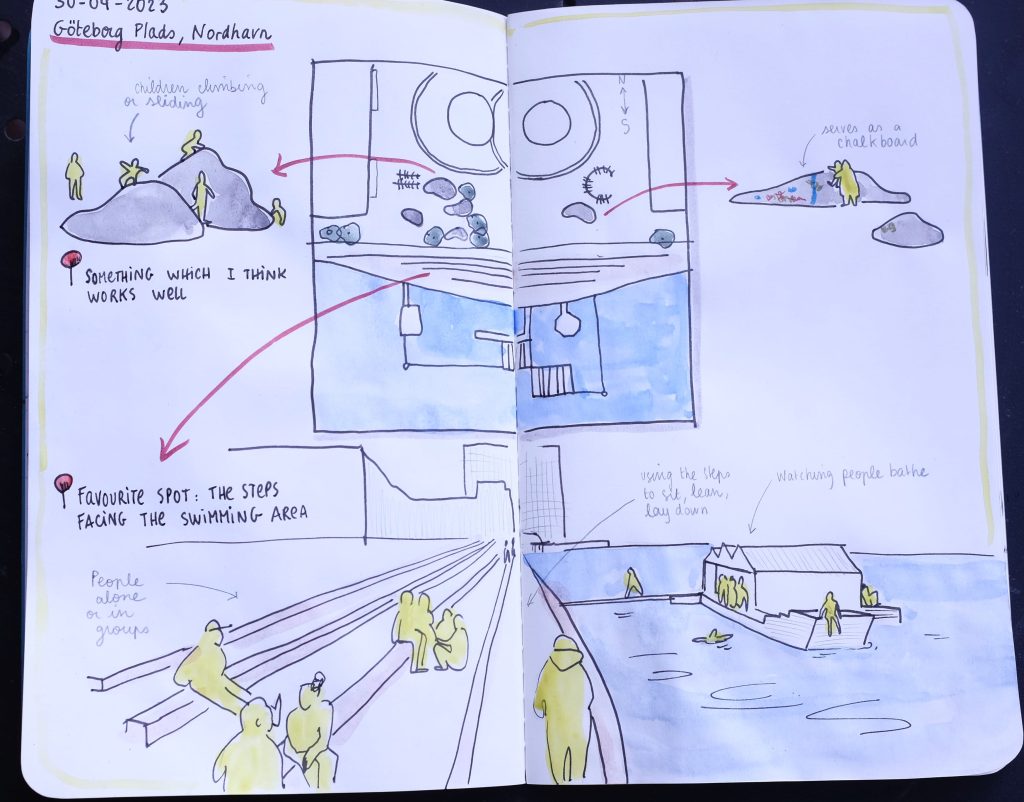 30-04-2023
Göteborg Plads, Nordhavn
children climbing
or sliding
N
S
serves as a
chalkboard
SOMETHING WHICH I THINK
WORKS WELL
FAVOURITE SPOT: THE STEPS
FACING THE SWIMMING AREA
using the steps
to sit, lean,
lay down
watching people bathe
People
alone
or in
groups